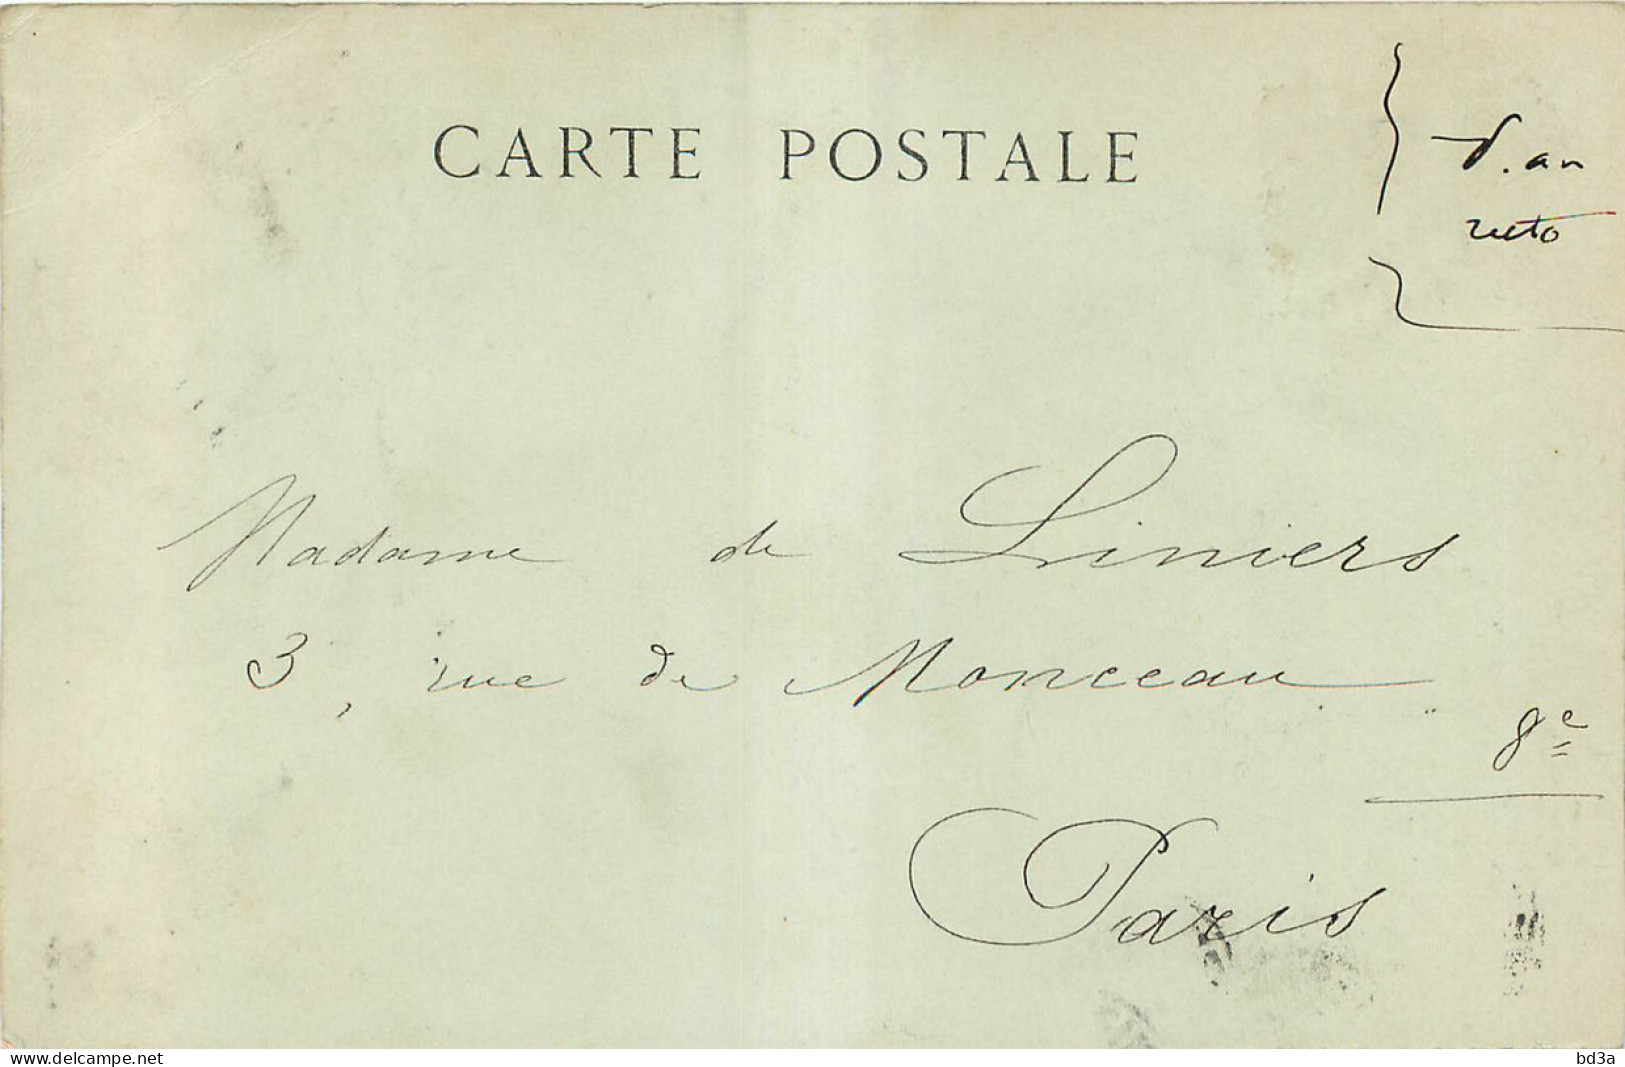 CARTE POSTALE
d. an
recto
Madame de Liniers
3, rue de Monceau
8e
Paris
www.delcampe.net
bd3a